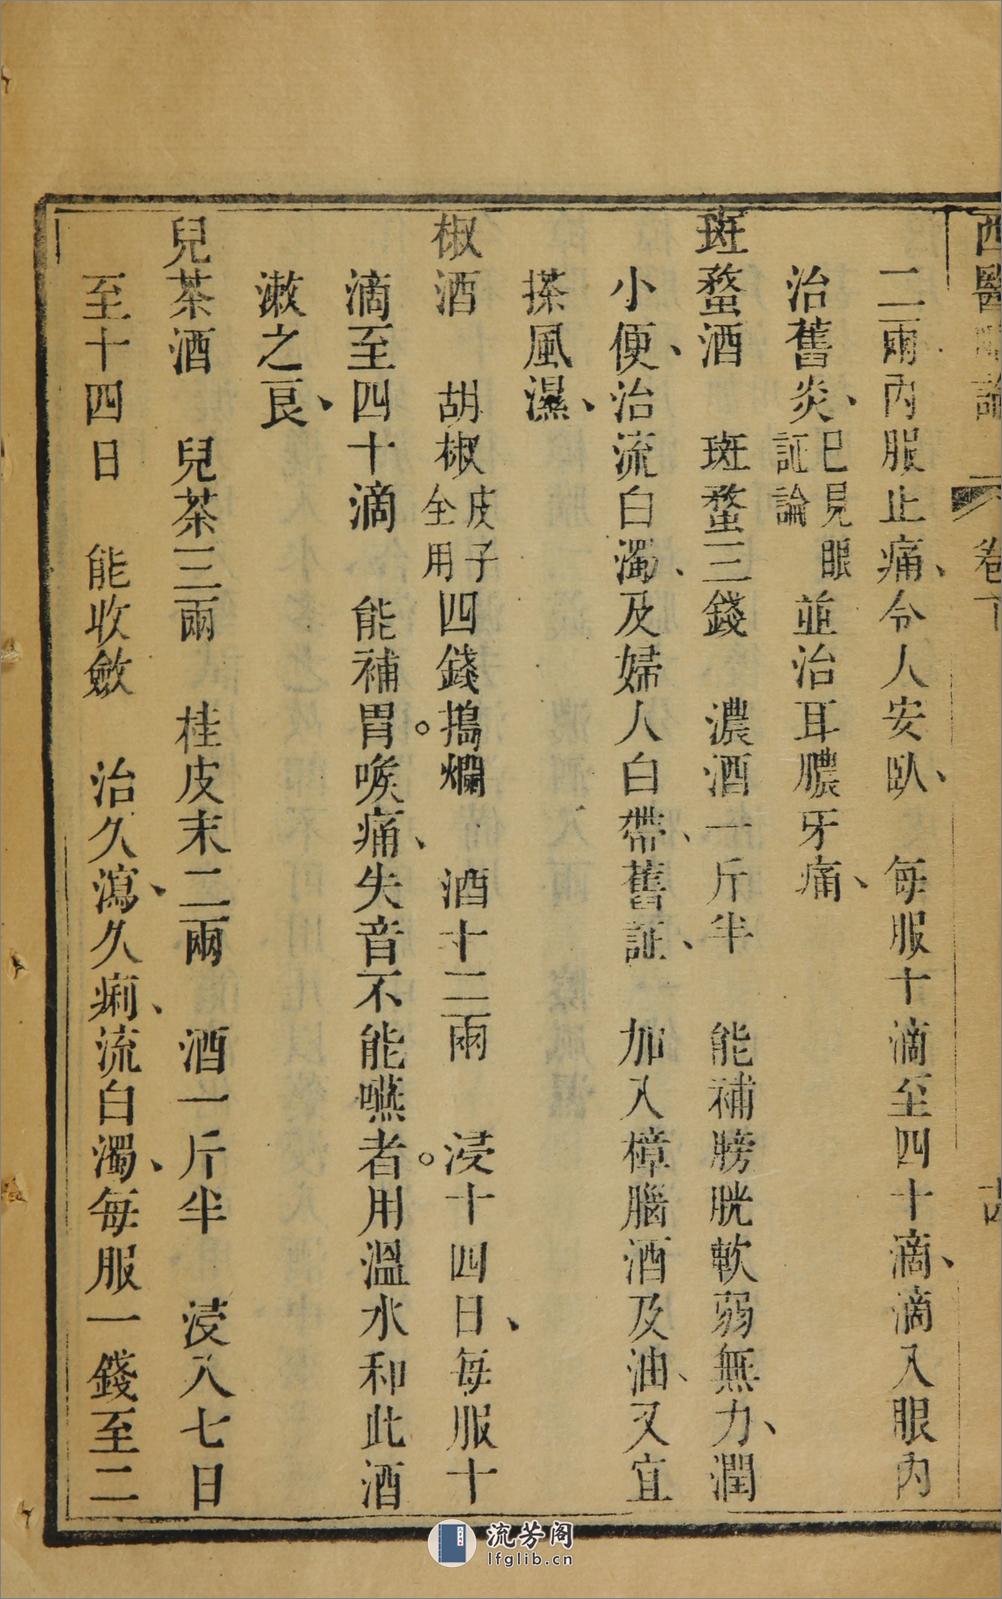 西醫略論 卷下 十四
二兩內服止痛、令人安臥、 每服十滴至四十滴、滴入眼內
治舊炎、已見眼証論並治耳膿牙痛、
斑蝥酒 斑蝥三錢 濃酒一斤半 能補膀胱軟弱無力、潤
小便、治流白濁、及婦人白帶、舊証、 加入樟腦酒及油、又宜
搽風濕、
椒酒 胡椒皮子全用四錢搗爛 酒十二兩 浸十四日、每服十
滴至四十滴 能補胃。喉痛、失音不能嚥者。用溫水和此酒
漱之良、
兒茶酒 兒茶三兩 桂皮末二兩 酒一斤半 浸八七日
至十四日 能收斂 治久瀉、久痢、流白濁、每服一錢至二
流芳阁
lfglib.cn